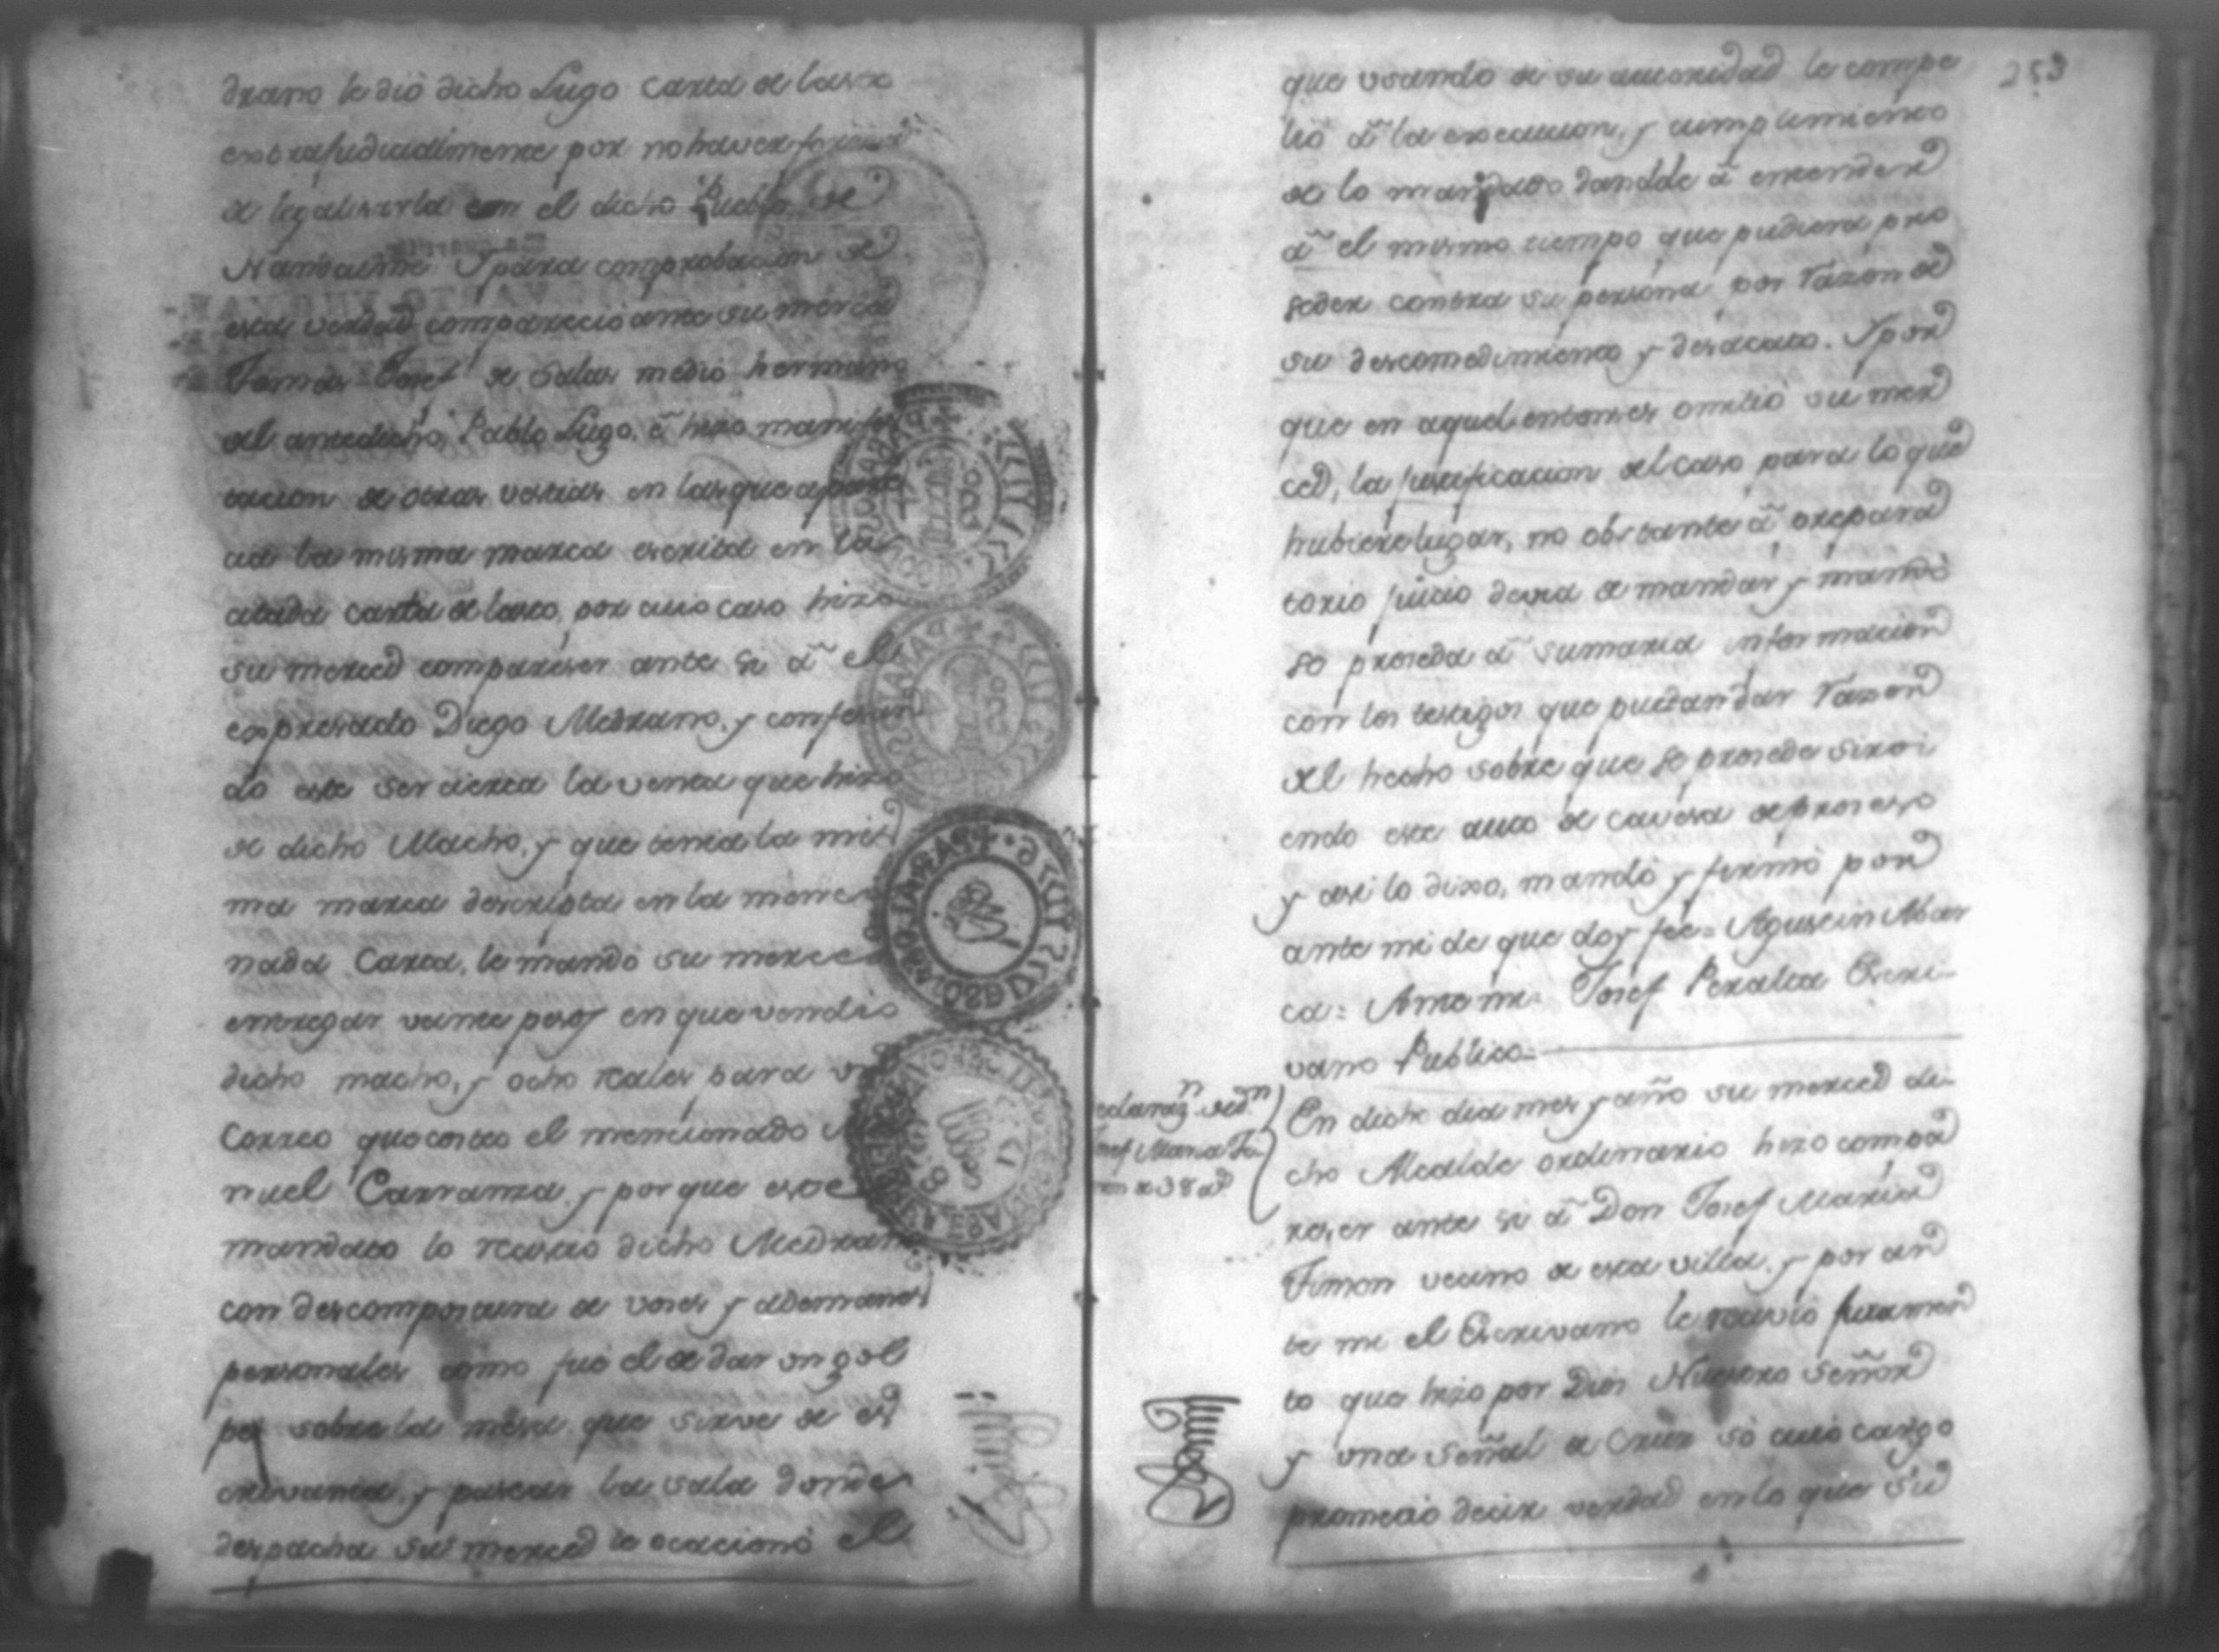 drano le dió dicho Lugo carta de lasto
extrajudicialmente por no haver forma
de legalisarla en el dicho Pueblo de
Y para comprobacion de
esta verdad comparecio ante su merced
Tomas Josef de Salas medio hermano
del antedicho Pablo Lugo, é hizo manifes
tacion de otras vestias en las que apare
cia la misma marca escrita en la
citada carta de lasto, por cuio caso hizo
su merced compareser ante si â el
expresado Diego Medrano, y confesan
do este ser cierta la venta que hizo
de dicho Macho, y que tenia la mis
ma marca descripta en la mencio
nada Carta, le mandó su merced
entregar veinte pesos en que vendio
dicho macho, y ocho reales para un
Correo que costeo el mencionado Ma
nuel Carranza, y porque este
mandato lo resistio dicho Medrano
con descompostura de voses y ademanes
personales como fue el de dar un gol
pe sobre la mesa que sirve de es
crivania, y pasear la sala donde
despacha su merced le ocacionó el
que usando de su autoridad le compe
lió â la execucion, y cumplimiento
de lo mandado dandole â entender
â el mismo tiempo que pudiera pro
seder contra su persona por razon de
su descomedimiento y desacato. Y por
que en aquel entonses omitió su mer
ced, la justificacion del caso para lo que
hubiere lugar, no obstante â
torio juicio devia de mandar y mandó
se proseda â sumaria informacion
con los testigos que puedan dar razon
del hecho sobre que se prosede sirvi
endo este auto de cavesa de proseso
y asi lo dixo, mandó y firmó por
ante mi de que doy fee= Agustin Abar
ca= Ante mi= Josef Peralta Escri-
vano Publico=
253
n de Dn
Josef Maria Fi
mon de 38 ad
En dicho dia mes y año su merced di-
cho Alcalde ordinario hizo compa
reser ante si â Don Josef Maria
Fimon vecino de esta villa, y por an
te mi el Escrivano le recivio juramen
to que hizo por Dios Nuestro Señor
y una señal de Cruz so cuio cargo
prometio decir verdad en lo que su